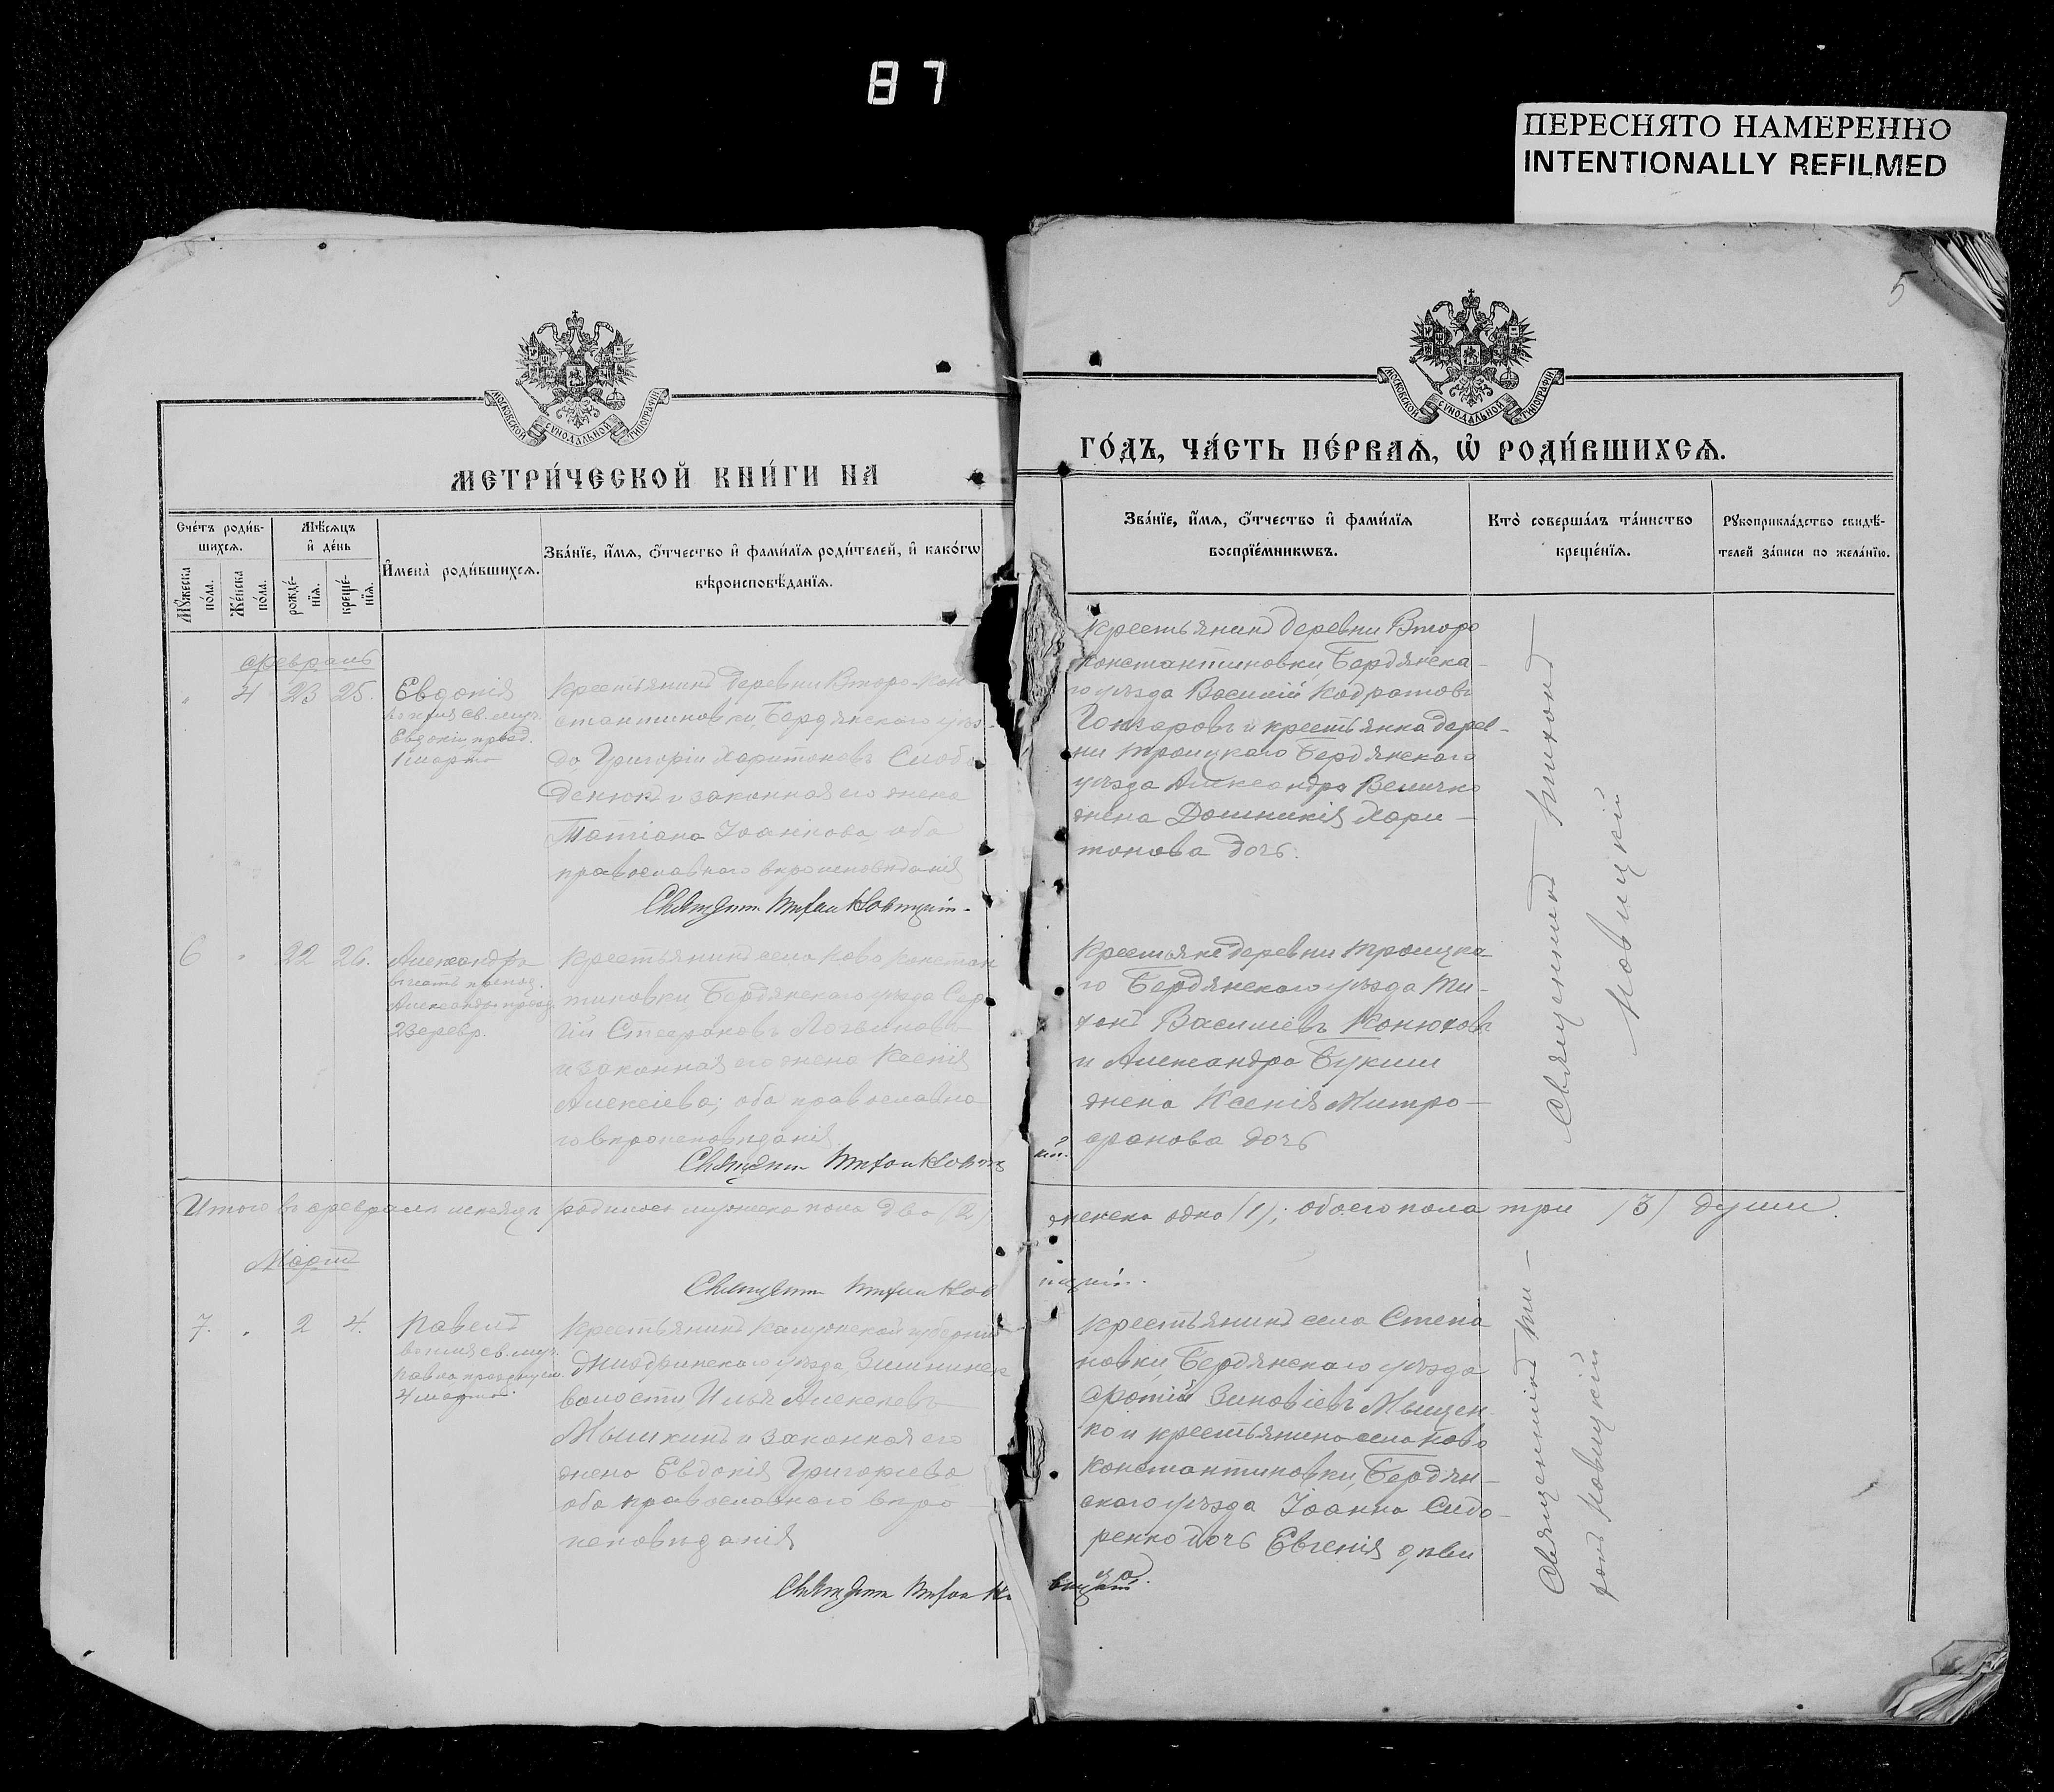 87
ПЕРЕСНЯТО НАМЕРЕННО
INTENTIONALLY REFILMED
5
МОСКОВСКОЙ СѴНОДАЛЬНОЙ ТИПОГРАФІИ
МОСКОВСКОЙ СѴНОДАЛЬНОЙ ТИПОГРАФІИ
МЕТРИ́ЧЕСКОЙ КНИ́ГИ НА
ГО́ДЪ, ЧА́СТЬ ПЕ́РВАѦ, Ѡ҆ РОДИ́ВШИХСѦ.
Сче́тъ роди́в-
шихсѧ.
Мѣ́сѧцъ
и҆ де́нь
Мꙋ́жеска
по́ла.
Же́нска
по́ла.
рожде́-
нїѧ.
креще́-
нїѧ.
И҆мена̀ роди́вшихсѧ.
Зва́нїе, и҆́мѧ, ѻ҆́тчество и҆ фами́лїѧ роди́телей, и҆ како́гѡ
вѣроисповѣ́данїѧ.
Зва́нїе, и҆́мѧ, ѻ҆́тчество и҆ фами́лїѧ
воспрїе́мникѡвъ.
Кто̀ соверша́лъ та́инство
креще́нїѧ.
Рꙋкоприкла́дство свидѣ́-
телей за́писи по жела́нїю.
Февраль
" 4 23 25.
Евдокія
Евдокіи празд.
1 марта
Крестьянинъ деревни Второ-Кон
стантиновки Бердянскаго уѣз-
да Григорій Харитоновъ Слобо
денюкъ и законная его жена
Татіана Іоаннова, оба
православнаго вѣроисповѣданія
Священник Тихон Новицкій.
Крестьянинъ деревни Второ
константиновки Бердянска-
го уѣзда Василій Кодратовъ
Гончаровъ и крестьянка дерев-
ни Троицкаго Бердянскаго
уѣзда Александра Величко
жена Домникія Хари-
тонова дочь.
Священникъ Тихонъ
Новицкій
6 " 22 26.
Александръ
Александра празд
23 февр.
Крестьянинъ села Ново Констан
тиновки Бердянскаго уѣзда Сер
гій Стефановъ Логвиновъ
и законная его жена Ксенія
Алексіева; оба православна
го вѣроисповѣданія
Священник Тихон Новицкій.
Крестьяне деревни Троицка
го Бердянскаго уѣзда Ти-
хонъ Васильевъ Конюховъ
и Александра Букши
жена Ксенія Митро-
фанова дочь
Итого въ февралѣ мѣсяцѣ родилось мужеска пола два /2/
женска одна /1/; обоего пола три /3/ души.
Священник Тихон Новицкій.
Мартъ
7. " 2 4.
Павелъ
во имя св. муч.
Павла празднуем.
4 марта.
Крестьянинъ Калужской губерніи
волости Илья Алексеевъ
Мышкинъ и законная его
жена Евдокія Григорьева
оба православнаго вѣро
исповѣданія
Священник Тихон Новицкій.
Крестьянинъ села Степа
новки Бердянскаго уѣзда
Фотій Зиновіевъ Мищен
ко и крестьянина села Ново
константиновки, Бердян-
скаго уѣзда Іоанна Сидо-
ренко дочь Евгенія дѣви
ца.
Священникъ Ти-
хонъ Новицкій